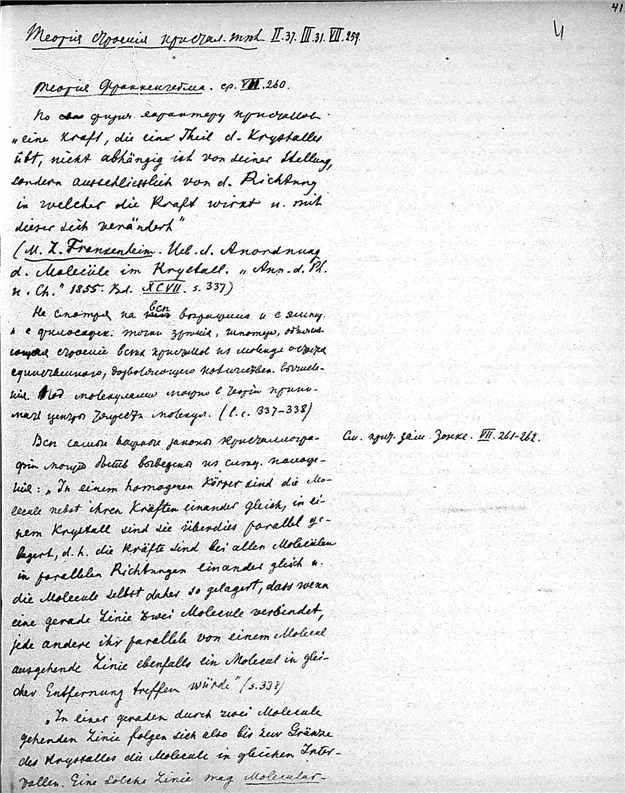 41
4
Теорія строенія кристал. тѣлъ II.37. III.31. VII.259.
Теорія Франкенгейма. ср. VII.260.
По физич. характеру кристаллов
„eine Kraft, die ein Theil d. Krystalles
übt, nicht abhängig ist von seiner Stellung,
sondern ausschliesslich von d. Richtung
in welcher die Kraft wirkt u. mit
dieser sich verändert"
(M. L. Frankenheim. Ueb. d. Anordnung
d. Molecüle im Krystall. „Ann. d. Ph.
u. Ch." 1855. Bd. XCVII. s. 337)
Не смотря на всѣ возраженія и с
и с философск. точки зрѣнія, гипотеза,
строеніе всѣхъ кристаллов из молекул остается
единственною, дозволяющею количествен.
Под молекулами можно в теоріи прини-
мать центры тяжести молекул. (l. c. 337-338)
Всѣ самые важные законы кристаллогра-
фіи могут быть выведены из слѣд. положе-
нія: „In einem homogenen Körper sind die Mo-
lecule nebst ihren Kräften einander gleich, in ei-
nem Krystall sind sie überdies parallel ge-
lagert, d. h. die Kräfte sind bei allen Molecülen
in parallelen Richtungen einander gleich u.
die Molecule selbst daher so gelagert, dass wenn
eine gerade Linie zwei Molecule verbindet,
jede andere ihr parallele von einem Molecul
ausgehende Linie ebenfalls ein Molecul in glei-
cher Entfernung treffen würde" (s. 338)
См. прим. зам. Зонке. VII. 261-262.
„In einer geraden durch zwei Molecule
gehenden Linie folgen sich also bis zur Gränze
des Krystalles die Molecule in gleichen Inter-
vallen. Eine solche Linie mag Molecular-